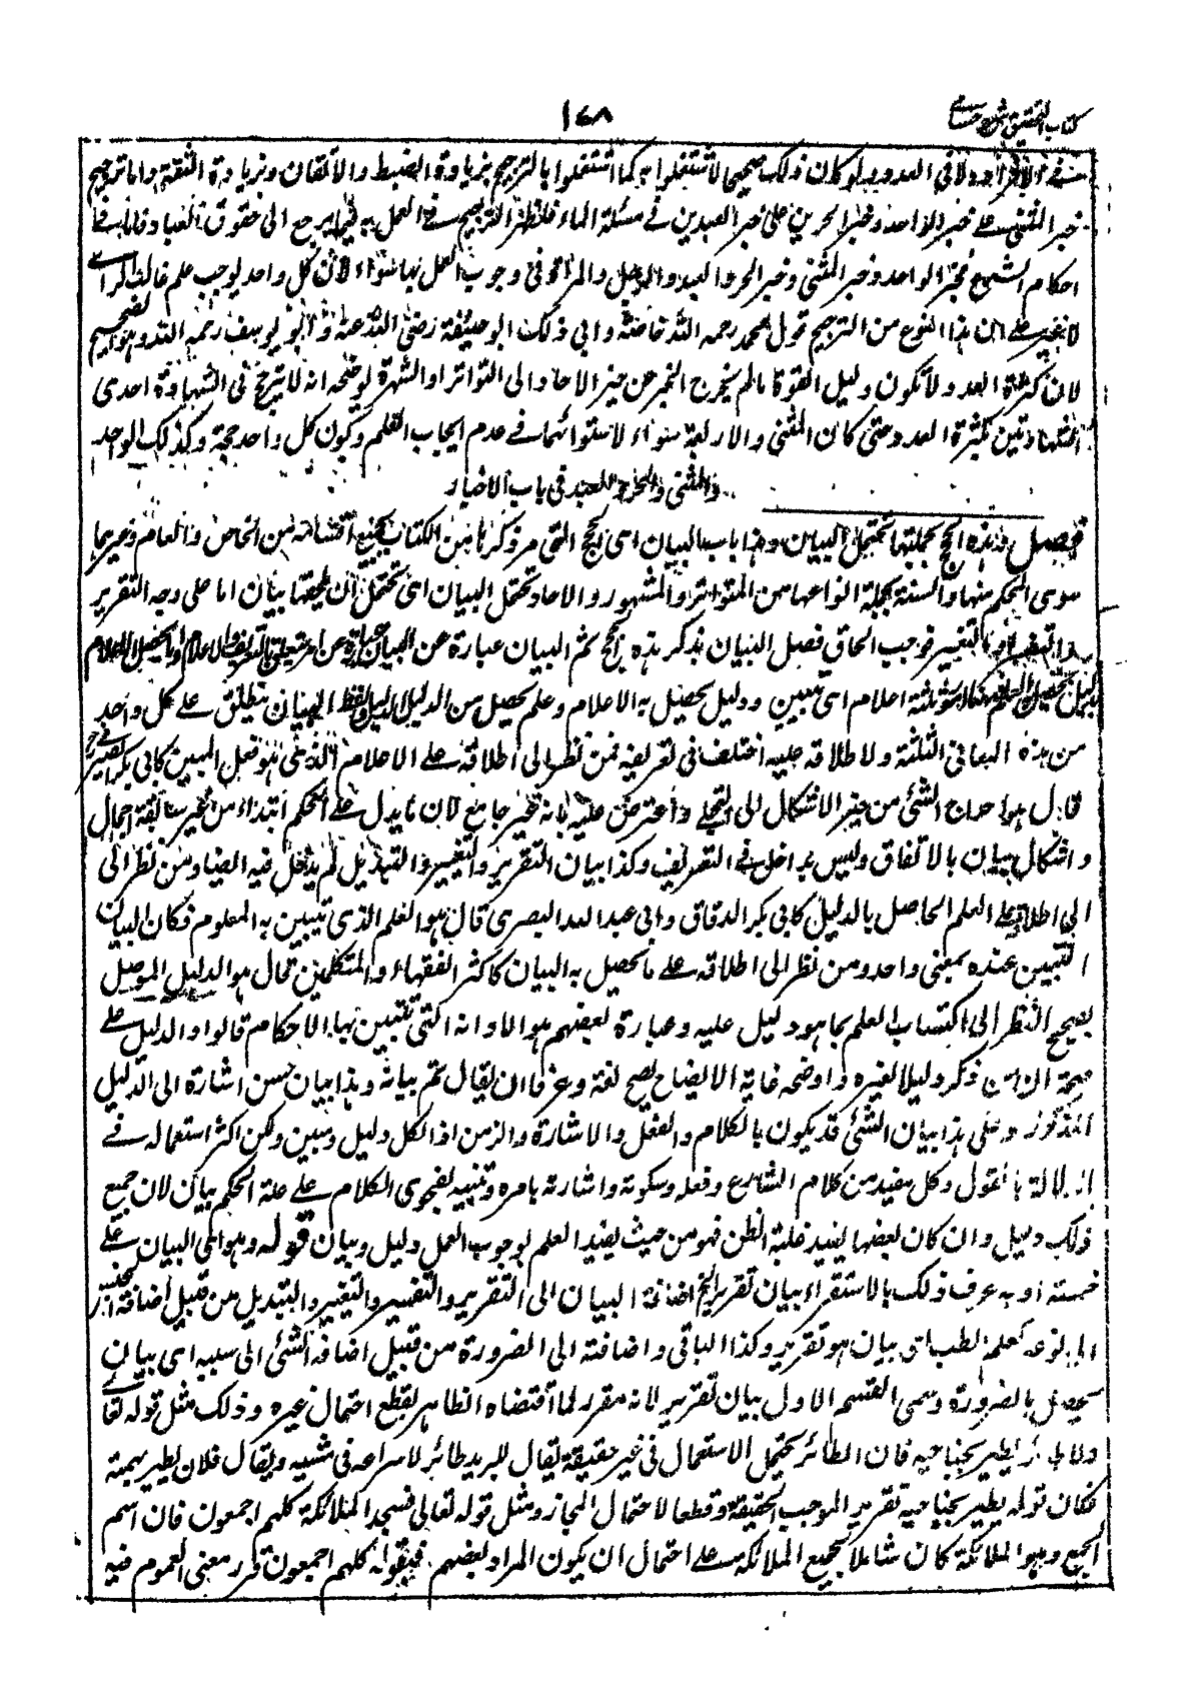 كتاب التحقيق شرح حسامى
١٤٨
فى الافراد ولا فى العدد ولو كان ذلك صحيحا لاشتغلوا به كما اشتغلوا بالترجيح بزيادة الضبط والاتقان وبزيادة الثقة واما ترجيح
خبر المثنى على خبر الواحد وخبر الحرين على خبر العبدين فى مسئلة الماء فلظهور الترجيح فى العمل به فيما يرجع الى حقوق العباد فاما فى
احكام الشرع فخبر الواحد وخبر المثنى وخبر الحر والعبد والرجل والمرأة فى وجوب العمل بها سواء لان كل واحد يوجب علم غالب الراى
لا غير على ان هذا النوع من الترجيح قول محمد رحمه الله خاصة وابى ذلك ابو حنيفة رضى الله عنه وابو يوسف رحمه الله وهو الصحيح
لان كثرة العدد لا تكون دليل القوة ما لم يخرج الخبر عن حيز الاحاد الى التواتر او الشهرة يوضحه انه لا يترجح فى الشهادة احدى
الشهادتين بكثرة العدد حتى كان المثنى والاربعة سواء لاستوائهما فى عدم ايجاب العلم وكون كل واحد حجة وكذلك الواحد
والمثنى والحر والعبد فى باب الاخبار
فصل وهذه الحجج بجملتها تحتمل البيان وهذا باب البيان اى الحجج التى مر ذكرها من الكتاب بجميع اقسامه من الخاص والعام وغيرهما
سوى المحكم منها والسنة بجملة انواعها من المتواتر والمشهور والاحاد تحتمل البيان اى تحتمل ان يلحقها بيان اما على وجه التقرير
او التفسير او التغيير فوجب الحاق فصل البيان بذكر هذه الحجج ثم البيان عبارة عن
اعلام اى تبيين ودليل يحصل به الاعلام وعلم يحصل من الدليل ولفظ البيان ينطلق على كل واحد
من هذه المعانى الثلثة ولاطلاقه عليه اختلف فى تعريفه فمن نظر الى اطلاقه على الاعلام الذى هو فعل المبين كابى بكر الصيرفى
قال هو اخراج الشئ من حيز الاشكال الى التجلى واعترض عليه بانه غير جامع لان ما يدل على الحكم ابتداء من غير سابقة اجمال
واشكال بيان بالاتفاق وليس بداخل فى التعريف وكذا بيان التقرير والتغيير والتبديل لم يدخل فيه ايضا ومن نظر الى
اطلاقه على العلم الحاصل بالدليل كابى بكر الدقاق وابى عبد الله البصرى قال هو العلم الذى يتبين به المعلوم فكان البيان
والتبيين عنده بمعنى واحد ومن نظر الى اطلاقه على ما يحصل به البيان كاكثر الفقهاء والمتكلمين قال هو الدليل الموصل
بصحيح النظر الى اكتساب العلم بما هو دليل عليه وعبارة بعضهم هو الادلة التى تتبين بها الاحكام قالوا والدليل على
صحته ان من ذكر دليلا لغيره واوضحه غاية الايضاح يصح لغة وعرفا ان يقال تم بيانه وهذا بيان حسن اشارة الى الدليل
المذكور وعلى هذا بيان الشئ قد يكون بالكلام والفعل والاشارة والرمز اذ الكل دليل ومبين ولكن اكثر استعماله فى
الدلالة بالقول وكل مفيد من كلام الشارع وفعله وسكوته واشارته بامره وتنبيه لفحوى الكلام على علة الحكم بيان لان جميع
ذلك دليل وان كان بعضها يفيد غلبة الظن فهو من حيث يفيد العلم بوجوب العمل دليل وبيان قوله وهو اى البيان على
خمسة اوجه عرف ذلك بالاستقراء بيان تقرير الخ اضافة البيان الى التقرير والتفسير والتغيير والتبديل من قبيل اضافة الجنس
الى نوعه كعلم الطب اى بيان هو تقرير وكذا الباقى واضافته الى الضرورة من قبيل اضافة الشئ الى سببه اى بيان
يحصل بالضرورة وسمى القسم الاول بيان تقرير لانه مقرر لما اقتضاه الظاهر بقطع احتمال غيره وذلك مثل قوله تعالى
ولا طائر يطير بجناحيه فان الطائر يحتمل الاستعمال فى غير حقيقة يقال للبريد طائر لاسراعه فى مشيه ويقال فلان يطير بهمته
فكان قوله يطير بجناحيه تقرير الموجب الحقيقة وقطعا لاحتمال المجاز ومثل قوله تعالى فسجد الملائكة كلهم اجمعون فان اسم
الجمع وهو الملائكة كان شاملا لجميع الملائكة على احتمال ان يكون المراد بعضهم فبقوله كلهم اجمعون قرر معنى العموم فيه